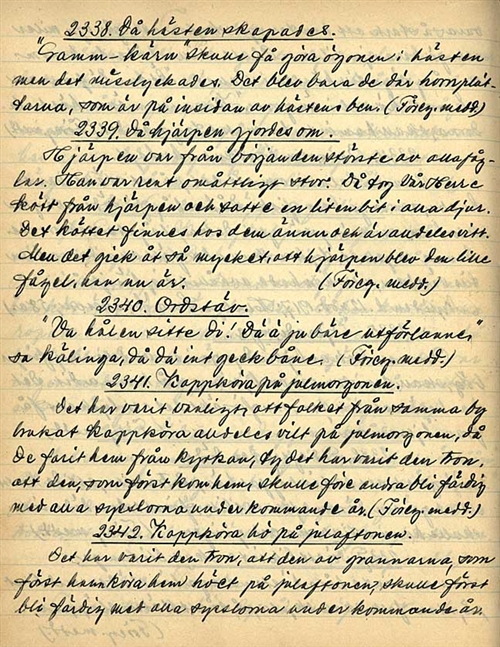 2338. Då hästen skapades.
"Gamm-kärn" skulle få göra ögonen i hästen
men det misslyckades. Det blev bara de där hornplät-
tarna, som är på insidan av hästens ben. (Föreg. medd.)
2339. Då hjärpen gjordes om.
Hjärpen var från början den största av alla fåg-
lar. Han var rent omåttligt stor. Då tog Vår Herre
kött från hjärpen och satte en liten bit i alla djur.
Det köttet finnes hos dem ännu och är alldeles vitt.
Men det gick åt så mycket, att hjärpen blev den lille
fågel, han nu är. (Föreg. medd.)
2340. Ordstäv.
"Va hålen sitte di! Dä ä ju bäre utförlanne,"
sa kälinga, då dä int geck båne. (Föreg. medd.)
2341. Kappköra på julmorgonen.
Det har varit vanligt, att folket från samma by
brukat kappköra alldeles vilt på julmorgonen, då
de farit hem från kyrkan, ty det har varit den tron,
att den, som först kom hem, skulle före andra bli färdig
med alla sysslorna under kommande år. (Föreg. medd.)
2342. Kappköra hö på julaftonen.
Det har varit den tron, att den av grannarna, som
först hann köra hem höet på julaftonen, skulle först
bli färdig med alla sysslorna under kommande år.
(Föreg. medd.)